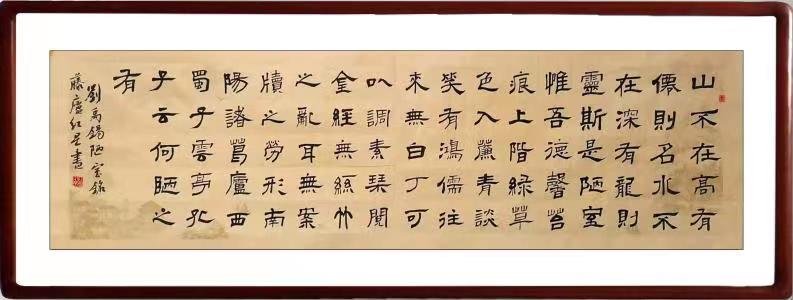 山不在高有
僊則名水不
在深有龍則
靈斯是陋室
惟吾德馨苔
痕上階綠草
色入簾青談
笑有鴻儒往
來無白丁可
以調素琴閱
金經無絲竹
之亂耳無案
牘之勞形南
陽諸葛廬西
蜀子雲亭孔
子云何陋之
有
劉禹錫陋室銘
藤廬紅星書